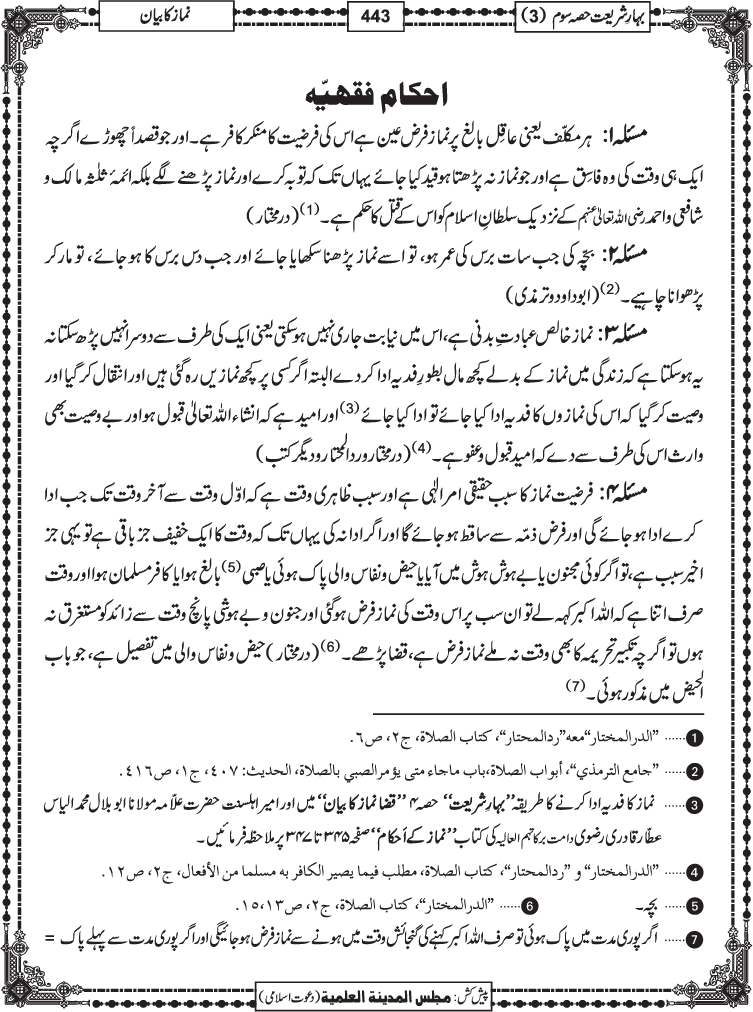 بہارِ شریعت حصہ سوم (3)
443
نماز کا بیان
احکام فقہیّہ
مسئلہ ۱: ہر مکلّف یعنی عاقِل بالغ پر نماز فرض عین ہے اس کی فرضیت کا منکر کافر ہے۔ اور جو قصداً چھوڑے اگرچہ
ایک ہی وقت کی وہ فاسِق ہے اور جو نماز نہ پڑھتا ہو قید کیا جائے یہاں تک کہ توبہ کرے اور نماز پڑھنے لگے بلکہ ائمۂ ثلٰثہ مالک و
شافعی و احمد رضی اللہ تعالیٰ عنہم کے نزدیک سلطانِ اسلام کو اس کے قتل کا حکم ہے۔ (1) (درمختار)
مسئلہ ۲: بچّہ کی جب سات برس کی عمر ہو، تو اسے نماز پڑھنا سکھایا جائے اور جب دس برس کا ہو جائے، تو مار کر
پڑھوانا چاہیے۔ (2) (ابو داود و ترمذی)
مسئلہ ۳: نماز خالص عبادتِ بدنی ہے، اس میں نیابت جاری نہیں ہو سکتی یعنی ایک کی طرف سے دوسرا نہیں پڑھ سکتا نہ
یہ ہو سکتا ہے کہ زندگی میں نماز کے بدلے کچھ مال بطورِ فدیہ ادا کر دے البتہ اگر کسی پر کچھ نمازیں رہ گئی ہیں اور انتقال کر گیا اور
وصیت کر گیا کہ اس کی نمازوں کا فدیہ ادا کیا جائے تو ادا کیا جائے (3) اور امید ہے کہ انشاء اللہ تعالیٰ قبول ہو اور بے وصیت بھی
وارث اس کی طرف سے دے کہ امید قبول و عفو ہے۔ (4) (درمختار و ردالمحتار و دیگر کتب)
مسئلہ ۴: فرضیت نماز کا سبب حقیقی امر الٰہی ہے اور سبب ظاہری وقت ہے کہ اوّل وقت سے آخر وقت تک جب ادا
کرے ادا ہو جائے گی اور فرض ذمّہ سے ساقط ہو جائے گا اور اگر ادا نہ کی یہاں تک کہ وقت کا ایک خفیف جز باقی ہے تو یہی جز
اخیر سبب ہے، تو اگر کوئی مجنون یا بے ہوش ہوش میں آیا یا حیض و نفاس والی پاک ہوئی یا صبی (5) بالغ ہوا یا کافر مسلمان ہوا اور وقت
صرف اتنا ہے کہ اللہ اکبر کہہ لے تو ان سب پر اس وقت کی نماز فرض ہو گئی اور جنون و بے ہوشی پانچ وقت سے زائد کو مستغرق نہ
ہوں تو اگرچہ تکبیر تحریمہ کا بھی وقت نہ ملے نماز فرض ہے، قضا پڑھے۔ (6) (درمختار) حیض و نفاس والی میں تفصیل ہے، جو باب
الحیض میں مذکور ہوئی۔ (7)
1 ...... "الدرالمختار" معه "ردالمحتار"، كتاب الصلاة، ج۲، ص۶.
2 ...... "جامع الترمذي"، أبواب الصلاة، باب ماجاء متى يؤمر الصبي بالصلاة، الحديث: ۴۰۷، ج۱، ص۴۱۶.
3 ...... نماز کا فدیہ ادا کرنے کا طریقہ "بہارِ شریعت" حصہ ۴ "قضا نماز کا بیان" میں اور امیر اہلسنت حضرت علاّمہ مولانا ابو بلال محمد الیاس
عطّار قادری رضوی دامت برکاتہم العالیہ کی کتاب "نماز کے اَحکام" صفحہ ۳۴۵ تا ۳۴۷ پر ملاحظہ فرمائیں۔
4 ...... "الدرالمختار" و "ردالمحتار"، كتاب الصلاة، مطلب فيما يصير الكافر به مسلما من الأفعال، ج۲، ص۱۲.
5 ...... بچّہ۔ 6 ...... "الدرالمختار"، كتاب الصلاة، ج۲، ص۱۳،۱۵.
7 ...... اگر پوری مدت میں پاک ہوئی تو صرف اللہ اکبر کہنے کی گنجائش وقت میں ہونے سے نماز فرض ہو جائیگی اور اگر پوری مدت سے پہلے پاک =
پیش کش: مجلس المدينة العلمية (دعوت اسلامی)